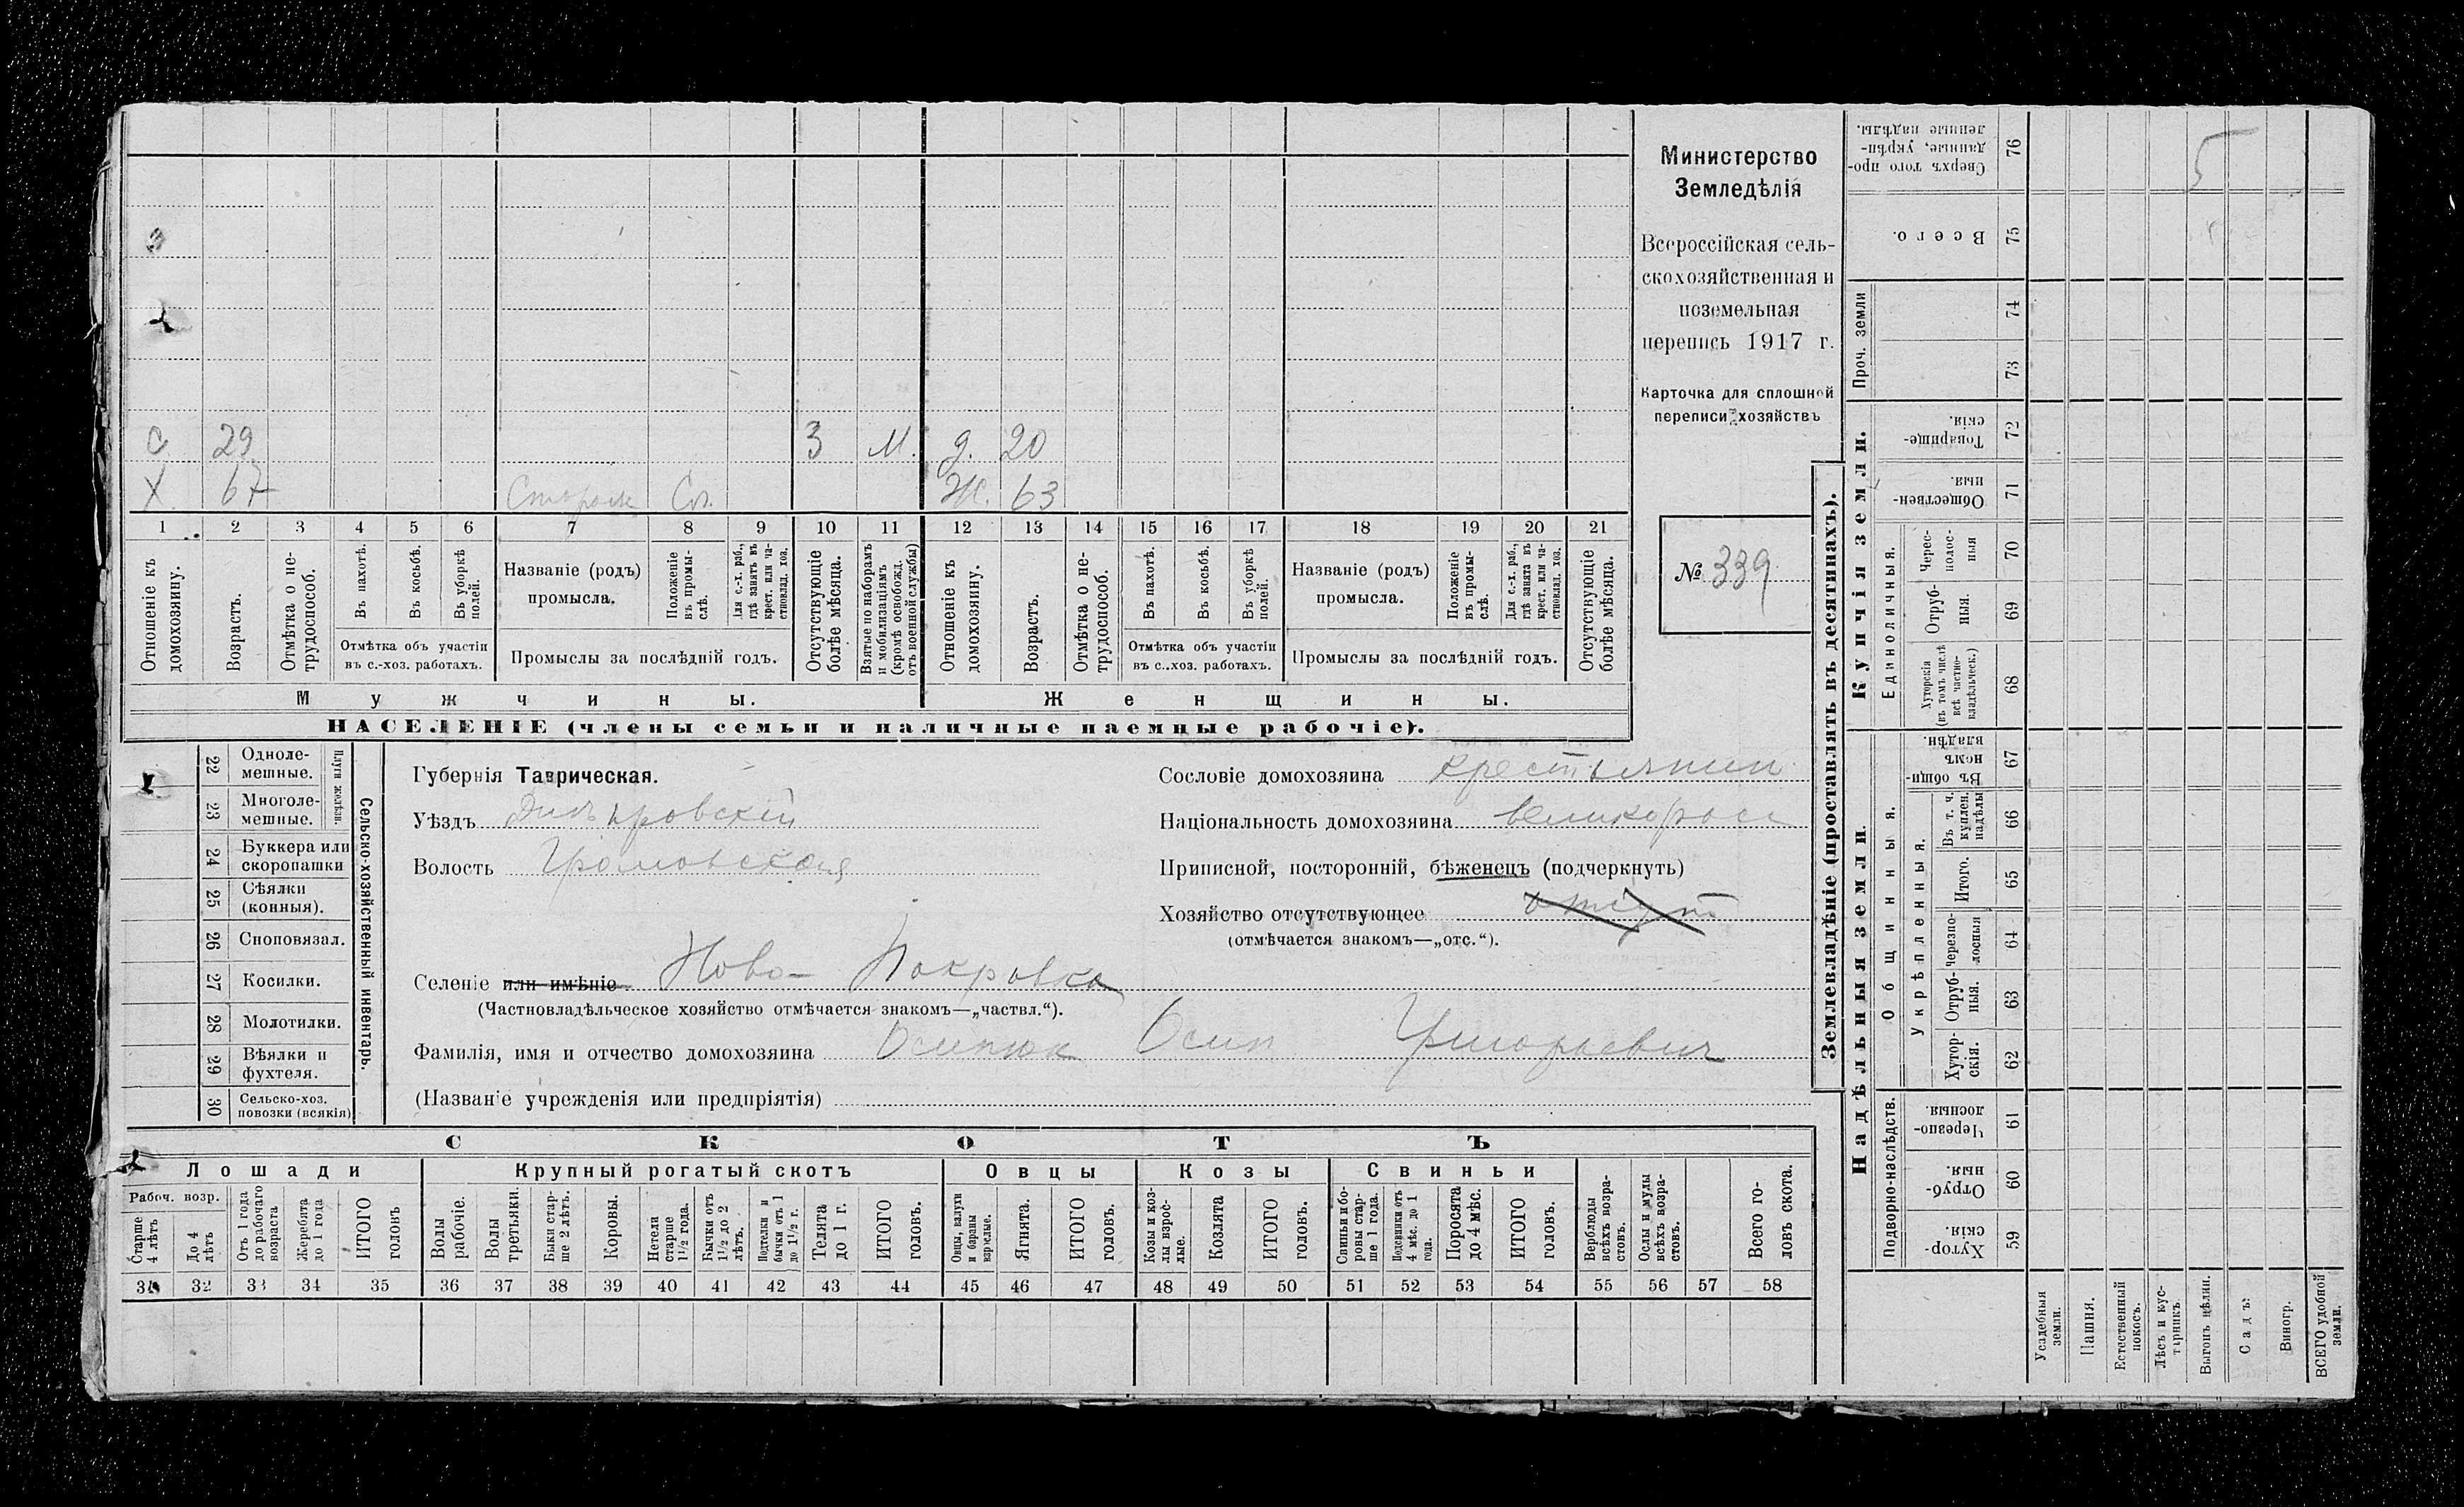 С 29 3 М. д. 20
Х 67 Сторож Сл. Ж. 63
1 2 3 4 5 6 7 8 9 10 11 12 13 14 15 16 17 18 19 20 21
Отношеніе къ домохозяину.
Возрастъ.
Отмѣтка о не-трудоспособ.
Въ пахотѣ.
Въ косьбѣ.
Въ уборкѣ полей.
Отмѣтка объ участіи
въ с.-хоз. работахъ.
Названіе (родъ)
промысла.
Положеніе въ промы-слѣ.
Для с.-х. раб., гдѣ занятъ въ крест. или ча-стновлад. хоз.
Промыслы за послѣдній годъ.
Отсутствующіе болѣе мѣсяца.
Взятые по наборамъ и мобилизаціямъ (кромѣ освобожд. отъ военной службы)
Отношеніе къ домохозяину.
Возрастъ.
Отмѣтка о не-трудоспособ.
Въ пахотѣ.
Въ косьбѣ.
Въ уборкѣ полей.
Отмѣтка объ участіи
въ с..хоз. работахъ.
Названіе (родъ)
промысла.
Положеніе въ промы-слѣ.
Для с.-х. раб., гдѣ занята въ крест. или ча-стновлад. хоз.
Промыслы за послѣдній годъ.
Отсутствующіе болѣе мѣсяца.
Мужчины.
Женщины.
НАСЕЛЕНІЕ (члены семьи и наличные наемные рабочіе).
Министерство
Земледѣлія
Всероссійская сель-
скохозяйственная и
поземельная
перепись 1917 г.
Карточка для сплошной
переписи хозяйствъ
№ 339
22 Одноле-мешные.
23 Многоле-мешные.
Плуги желѣзн.
24 Буккера или скоропашки
25 Сѣялки (конныя).
26 Сноповязал.
27 Косилки.
28 Молотилки.
29 Вѣялки и фухтеля.
30 Сельско-хоз. повозки (всякія)
Сельско-хозяйственный инвентарь.
Губернія Таврическая.
Уѣздъ Днѣпровскій
Волость Громовская
Селеніе или имѣніе Ново-Покровка
(Частновладѣльческое хозяйство отмѣчается знакомъ—„частвл.“).
Фамилія, имя и отчество домохозяина Осипюк Осип Григорьевич
(Названіе учрежденія или предпріятія)
Сословіе домохозяина крестьянин
Національность домохозяина великоросс
Приписной, посторонній, бѣженецъ (подчеркнуть)
Хозяйство отсутствующее
(отмѣчается знакомъ—„отс.“).
СКОТЪ
Лошади
Крупный рогатый скотъ
Овцы
Козы
Свиньи
Рабоч. возр.
Старше 4 лѣтъ
До 4 лѣтъ
Отъ 1 года до рабочаго возраста
Жеребята до 1 года
ИТОГО головъ
Волы рабочіе.
Волы третьяки.
Быки стар-ше 2 лѣтъ.
Коровы.
Нетели старше 1½ года.
Бычки отъ 1½ до 2 лѣтъ.
Подтелки и бычки отъ 1 до 1½ г.
Телята до 1 г.
ИТОГО головъ.
Овцы, валухи и бараны взрослые.
Ягнята.
ИТОГО головъ.
Козы и коз-лы взрос-лые.
Козлята
ИТОГО головъ.
Свиньи и бо-ровы стар-ше 1 года.
Подсвинки отъ 4 мѣс. до 1 года.
Поросята до 4 мѣс.
ИТОГО головъ.
Верблюды всѣхъ возра-стовъ.
Ослы и мулы всѣхъ возра-стовъ.
Всего го-ловъ скота.
31 32 33 34 35 36 37 38 39 40 41 42 43 44 45 46 47 48 49 50 51 52 53 54 55 56 57 58
Землевладѣніе (проставлять въ десятинахъ).
Надѣльныя земли.
Купчія земли.
Проч. земли
Подворно-наслѣдств.
Общинныя.
Укрѣпленныя.
Единоличныя.
Хутор-скія. 59
Отруб-ныя. 60
Черезпо-лосныя. 61
Хутор-скія. 62
Отруб-ныя. 63
Черезпо-лосныя 64
Итого. 65
Въ т. ч. куплен. надѣлы 66
Въ общин-номъ владѣн. 67
Хуторскія (въ томъ числѣ всѣ частно-владѣльческ.) 68
Отруб-ныя. 69
Черес-полос-ныя 70
Обществен-ныя. 71
Товарище-скія. 72
73
74
Всего. 75
Сверхъ того про-данные, укрѣп-ленные надѣлы. 76
5
Усадебныя земли.
Пашня.
Естественный покосъ.
Лѣсъ и кус-тарникъ.
Выгонъ цѣлин.
Садъ
Виногр.
ВСЕГО удобной земли.